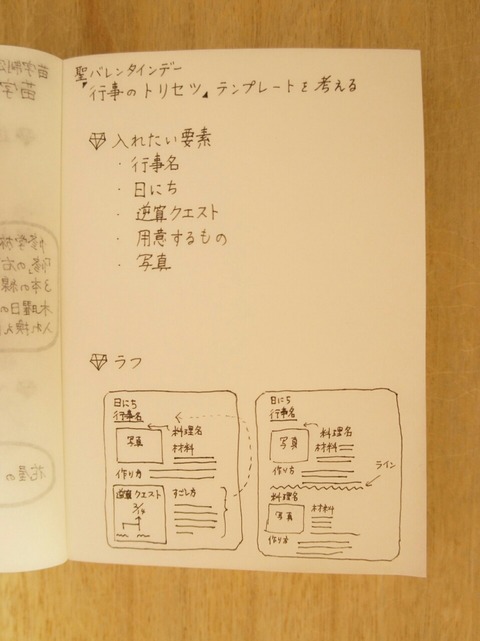 聖バレンタインデー
「行事のトリセツ」テンプレートを考える
入れたい要素
・行事名
・日にち
・逆算クエスト
・用意するもの
・写真
ラフ
日にち
行事名
写真
料理名
材料
作り方
逆算クエスト
すごし方
日にち
行事名
写真
料理名
材料
作り方
ライン
料理名
写真
材料
作り方
苗字